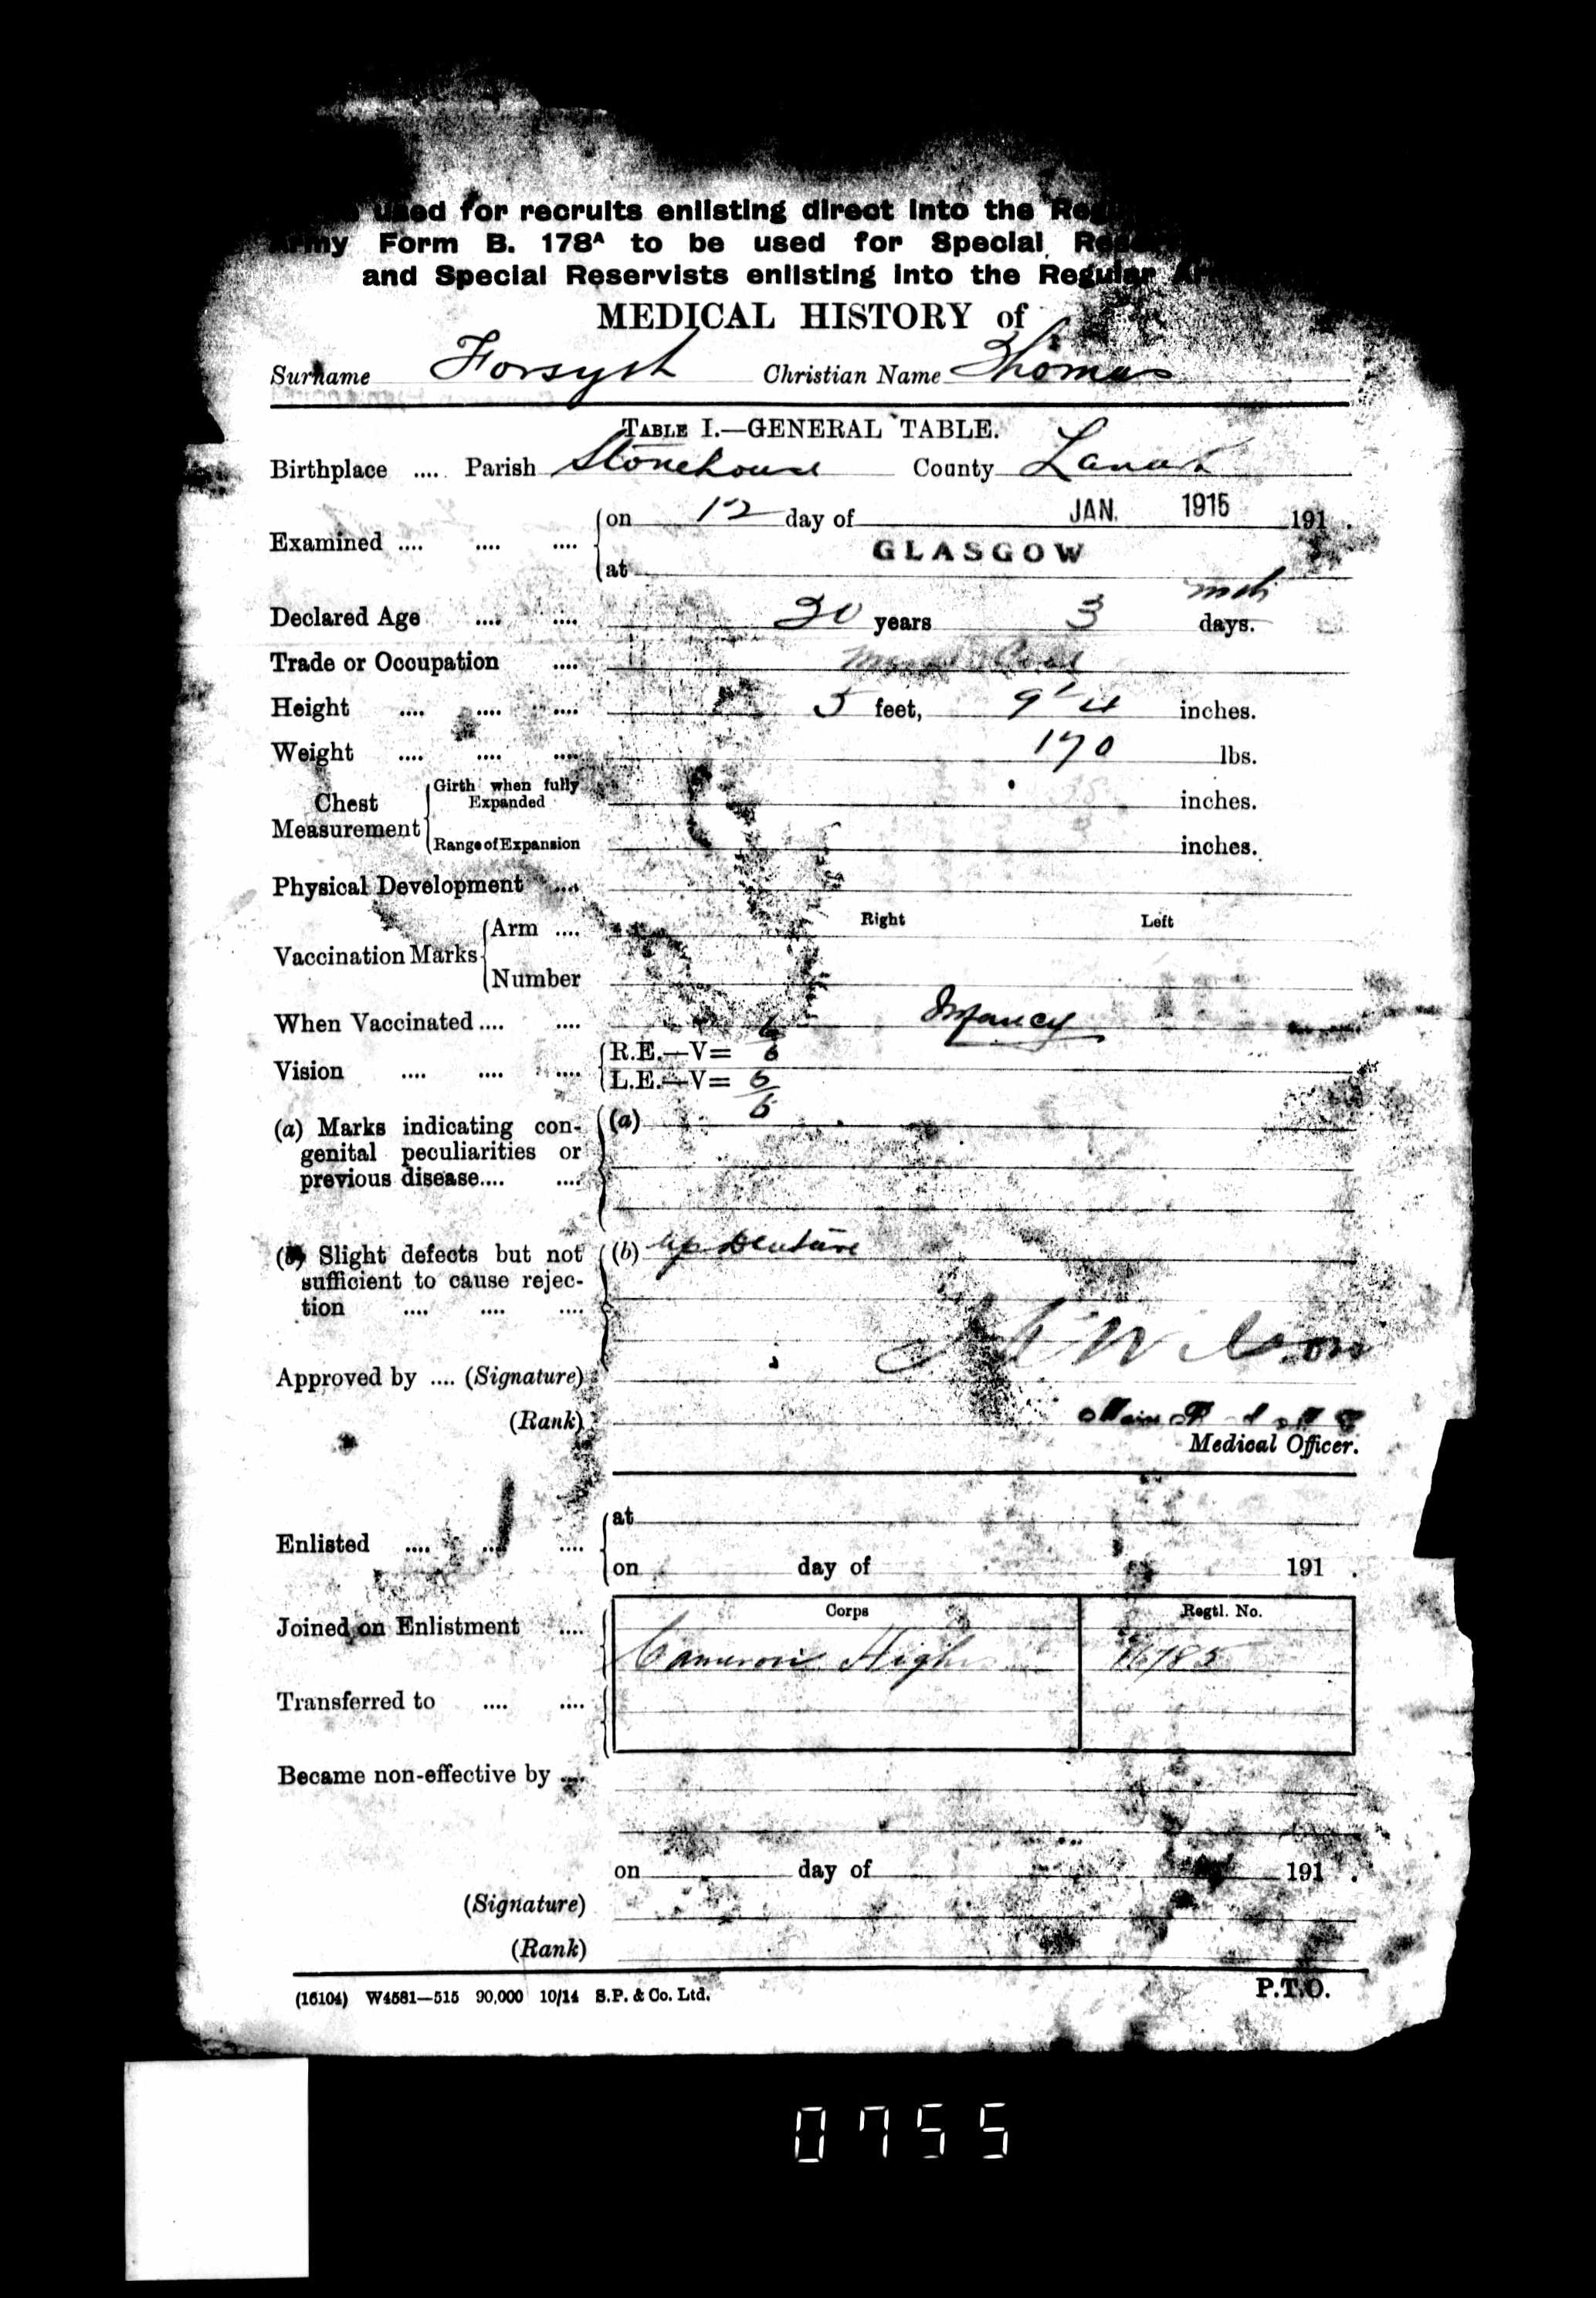 used for recruits enlisting direct into the Reg
Army Form B. 178A to be used for Special
and Special Reservists enlisting into the Regular
MEDICAL HISTORY of
Surname Forsyth Christian Name Thomas
TABLE I.—GENERAL TABLE.
Birthplace .... Parish Stonehouse County Lanark
Examined .... .... .... on 12 day of JAN. 1915 191 .
at GLASGOW
Declared Age .... .... 30 years 3 mths days.
Trade or Occupation ....
Height .... .... .... 5 feet, 9 1/4 inches.
Weight .... .... .... 170 lbs.
Chest Measurement Girth when fully Expanded inches.
Range of Expansion inches.
Physical Development ....
Right Left
Vaccination Marks Arm ....
Number
When Vaccinated .... .... Infancy
Vision .... .... .... R.E.—V= 6/6
L.E.—V= 6/6
(a) Marks indicating con- (a)
genital peculiarities or
previous disease.... ....
(b) Slight defects but not (b) Up Denture
sufficient to cause rejec-
tion .... .... ....
Wilson
Approved by .... (Signature)
(Rank)
Medical Officer.
Enlisted .... .... .... at
on day of 191 .
Corps Regtl. No.
Joined on Enlistment ....
Cameron High
Transferred to .... ....
Became non-effective by ....
on day of 191 .
(Signature)
(Rank)
(16104) W4581—515 90,000 10/14 S.P. & Co. Ltd. P.T.O.
0755